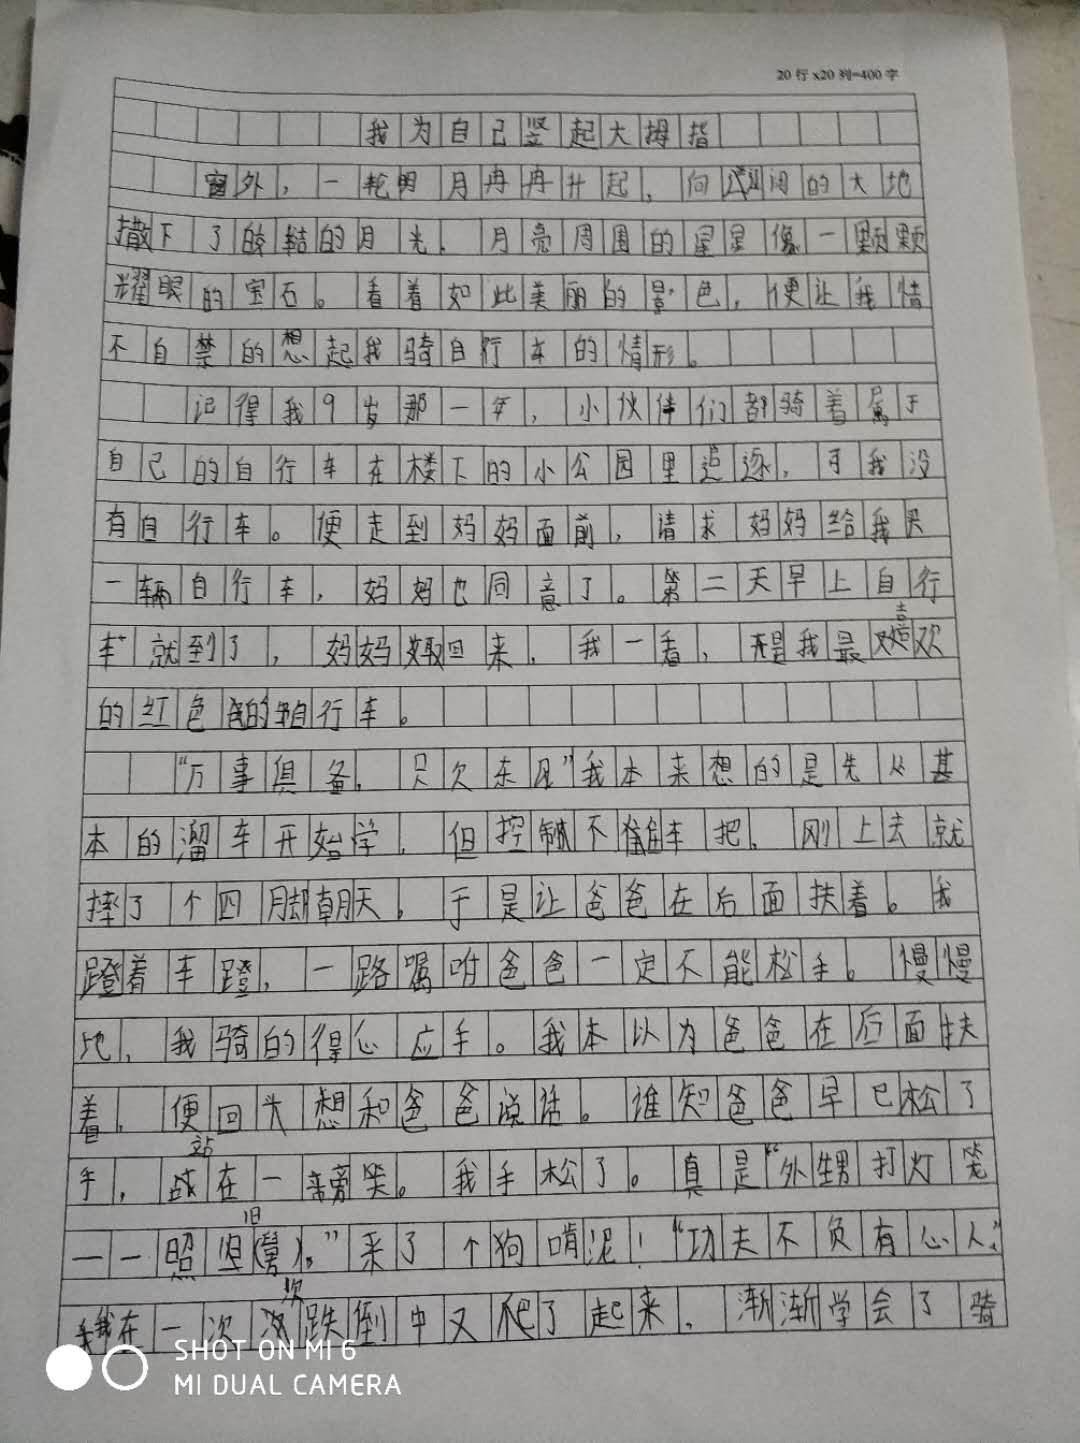 20行x20列=400字
我为自己竖起大拇指
窗外，一轮明月冉冉升起，向的大地
撒下了皎洁的月光，月亮周围的星星像一颗颗
耀眼的宝石。看着如此美丽的景色，便让我情
不自禁的想起我骑自行车的情形。
记得我9岁那一年，小伙伴们都骑着属于
自己的自行车在楼下的小公园里追逐，可我没
有自行车。便走到妈妈面前，请求妈妈给我买
一辆自行车，妈妈也同意了。第二天早上自行
车就到了，妈妈取回来，我一看，是我最喜欢
的红色的自行车。
“万事俱备，只欠东风”我本来想的是先从基
本的溜车开始学，但控制不住车把，刚上去就
摔了个四脚朝天，于是让爸爸在后面扶着。我
蹬着车蹬，一路嘱咐爸爸一定不能松手。慢慢
地，我骑的得心应手。我本以为爸爸在后面扶
着，便回头想和爸爸说话。谁知爸爸早已松了
手，站在一旁笑。我手松了。真是“外甥打灯笼
——照旧（舅）。”来了个狗啃泥！“功夫不负有心人”
我在一次次跌倒中又爬了起来，渐渐学会了骑
SHOT ON MI 6
MI DUAL CAMERA